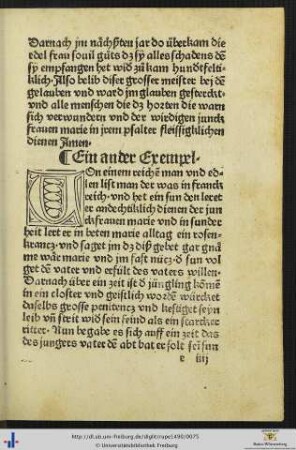 Darnach jm nächsten jar do überkam die
edel frau souil gůts dz sy alles schadens dē
sy empfangen het wid zů kam hundtfelti
klich· Also belib diser grosser meister bej dē
gelauben vnd ward jm glauben gesterckt·
vnd alle menschen die dz horten die warn
sich verwundern vnd der wirdigen junck
frauen marie in jrem psalter fleissigklichen
dienen Amen·
¶ Ein ander Exempl·
Von einem reichē man vnd ed-
len list man der was in franck
reich· vnd het ein sun den leret
er andechtiklich dienen der jun
ckfrauen marie vnd in sunder
heit lert er in beten marie alltag ein rosen
krancz· vnd saget jm dz diß gebet gar gnä
me wäre marie vnd jm fast nücz· d sun vol
get dē vater vnd erfült des vaters willen·
Darnach über ein zeit ist d jüngling komē
in ein closter vnd geistlich wordē würcket
daselbs grosse penitencz vnd kestiget seyn
leib vñ streit wid sein feind als ein starcker
ritter· Nun begabe es sich auff ein zeit das
des jungers vater dē abt bat er solt seī sun
e iiij
http://dl.ub.uni-freiburg.de/diglit/rupe1490/0075
Universitätsbibliothek Freiburg
Baden-Württemberg